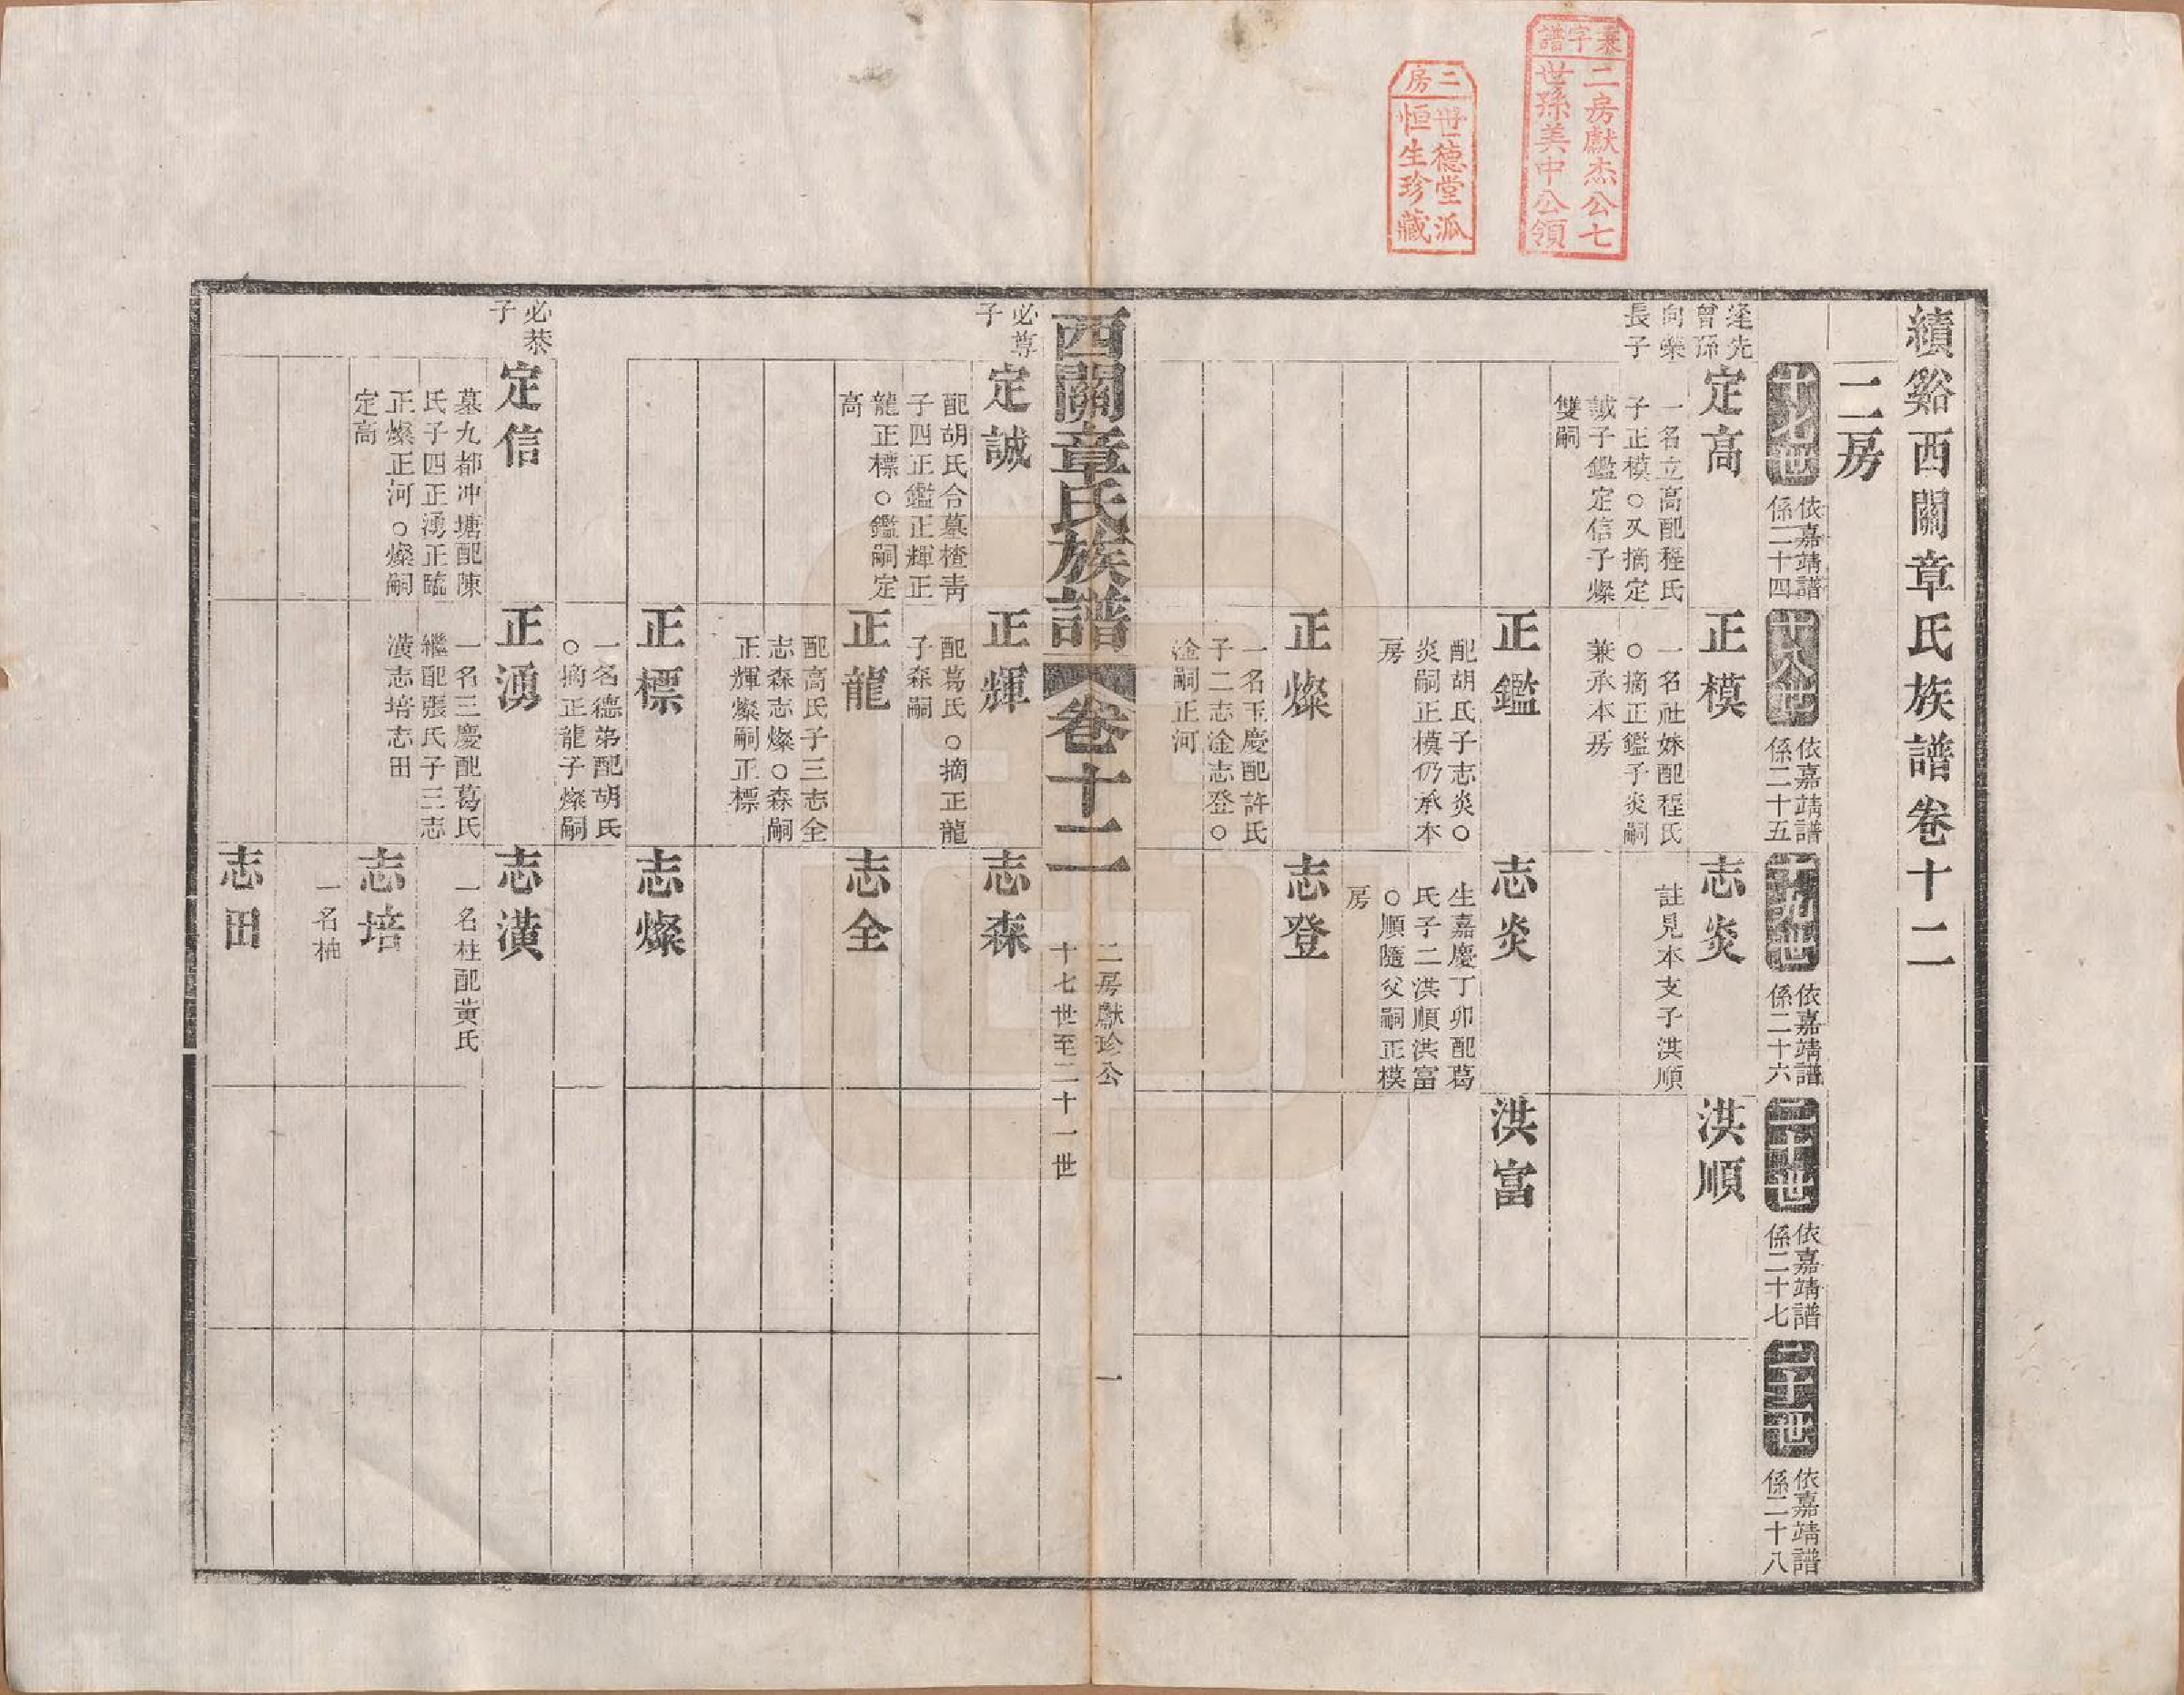 彙字譜
二房獻杰公七
世孫美中公領
二房
世德堂派
恒生珍藏
績谿西關章氏族譜卷十二
二房
十七世
依嘉靖譜
係二十四
十八世
依嘉靖譜
係二十五
十九世
依嘉靖譜
係二十六
二十世
依嘉靖譜
係二十七
二十一世
依嘉靖譜
係二十八
逢先
曾孫
向榮
長子
定高
一名立高配程氏
子正模○又摘定
誠子鑑定信子燦
雙嗣
正模
一名社妹配程氏
○摘正鑑子炎嗣
兼承本房
志炎
註見本支子洪順
洪順
正鑑
配胡氏子志炎○
炎嗣正模仍承本
房
志炎
生嘉慶丁卯配葛
氏子二洪順洪富
○順隨父嗣正模
房
洪富
正燦
一名玉慶配許氏
子二志淦志登○
淦嗣正河
志登
西關章氏族譜
卷十二
二房獻珍公
十七世至二十一世
一
必尊
子
定誠
配胡氏合墓楂青
子四正鑑正輝正
龍正標○鑑嗣定
高
正輝
配葛氏○摘正龍
子森嗣
志森
正龍
配高氏子三志全
志森志燦○森嗣
正輝燦嗣正標
志全
正標
一名德弟配胡氏
○摘正龍子燦嗣
志燦
必恭
子
定信
墓九都冲塘配陳
氏子四正湧正臨
正燦正河○燦嗣
定高
正湧
一名三慶配葛氏
繼配張氏子三志
潢志培志田
志潢
一名柱配黃氏
志培
一名柚
志田